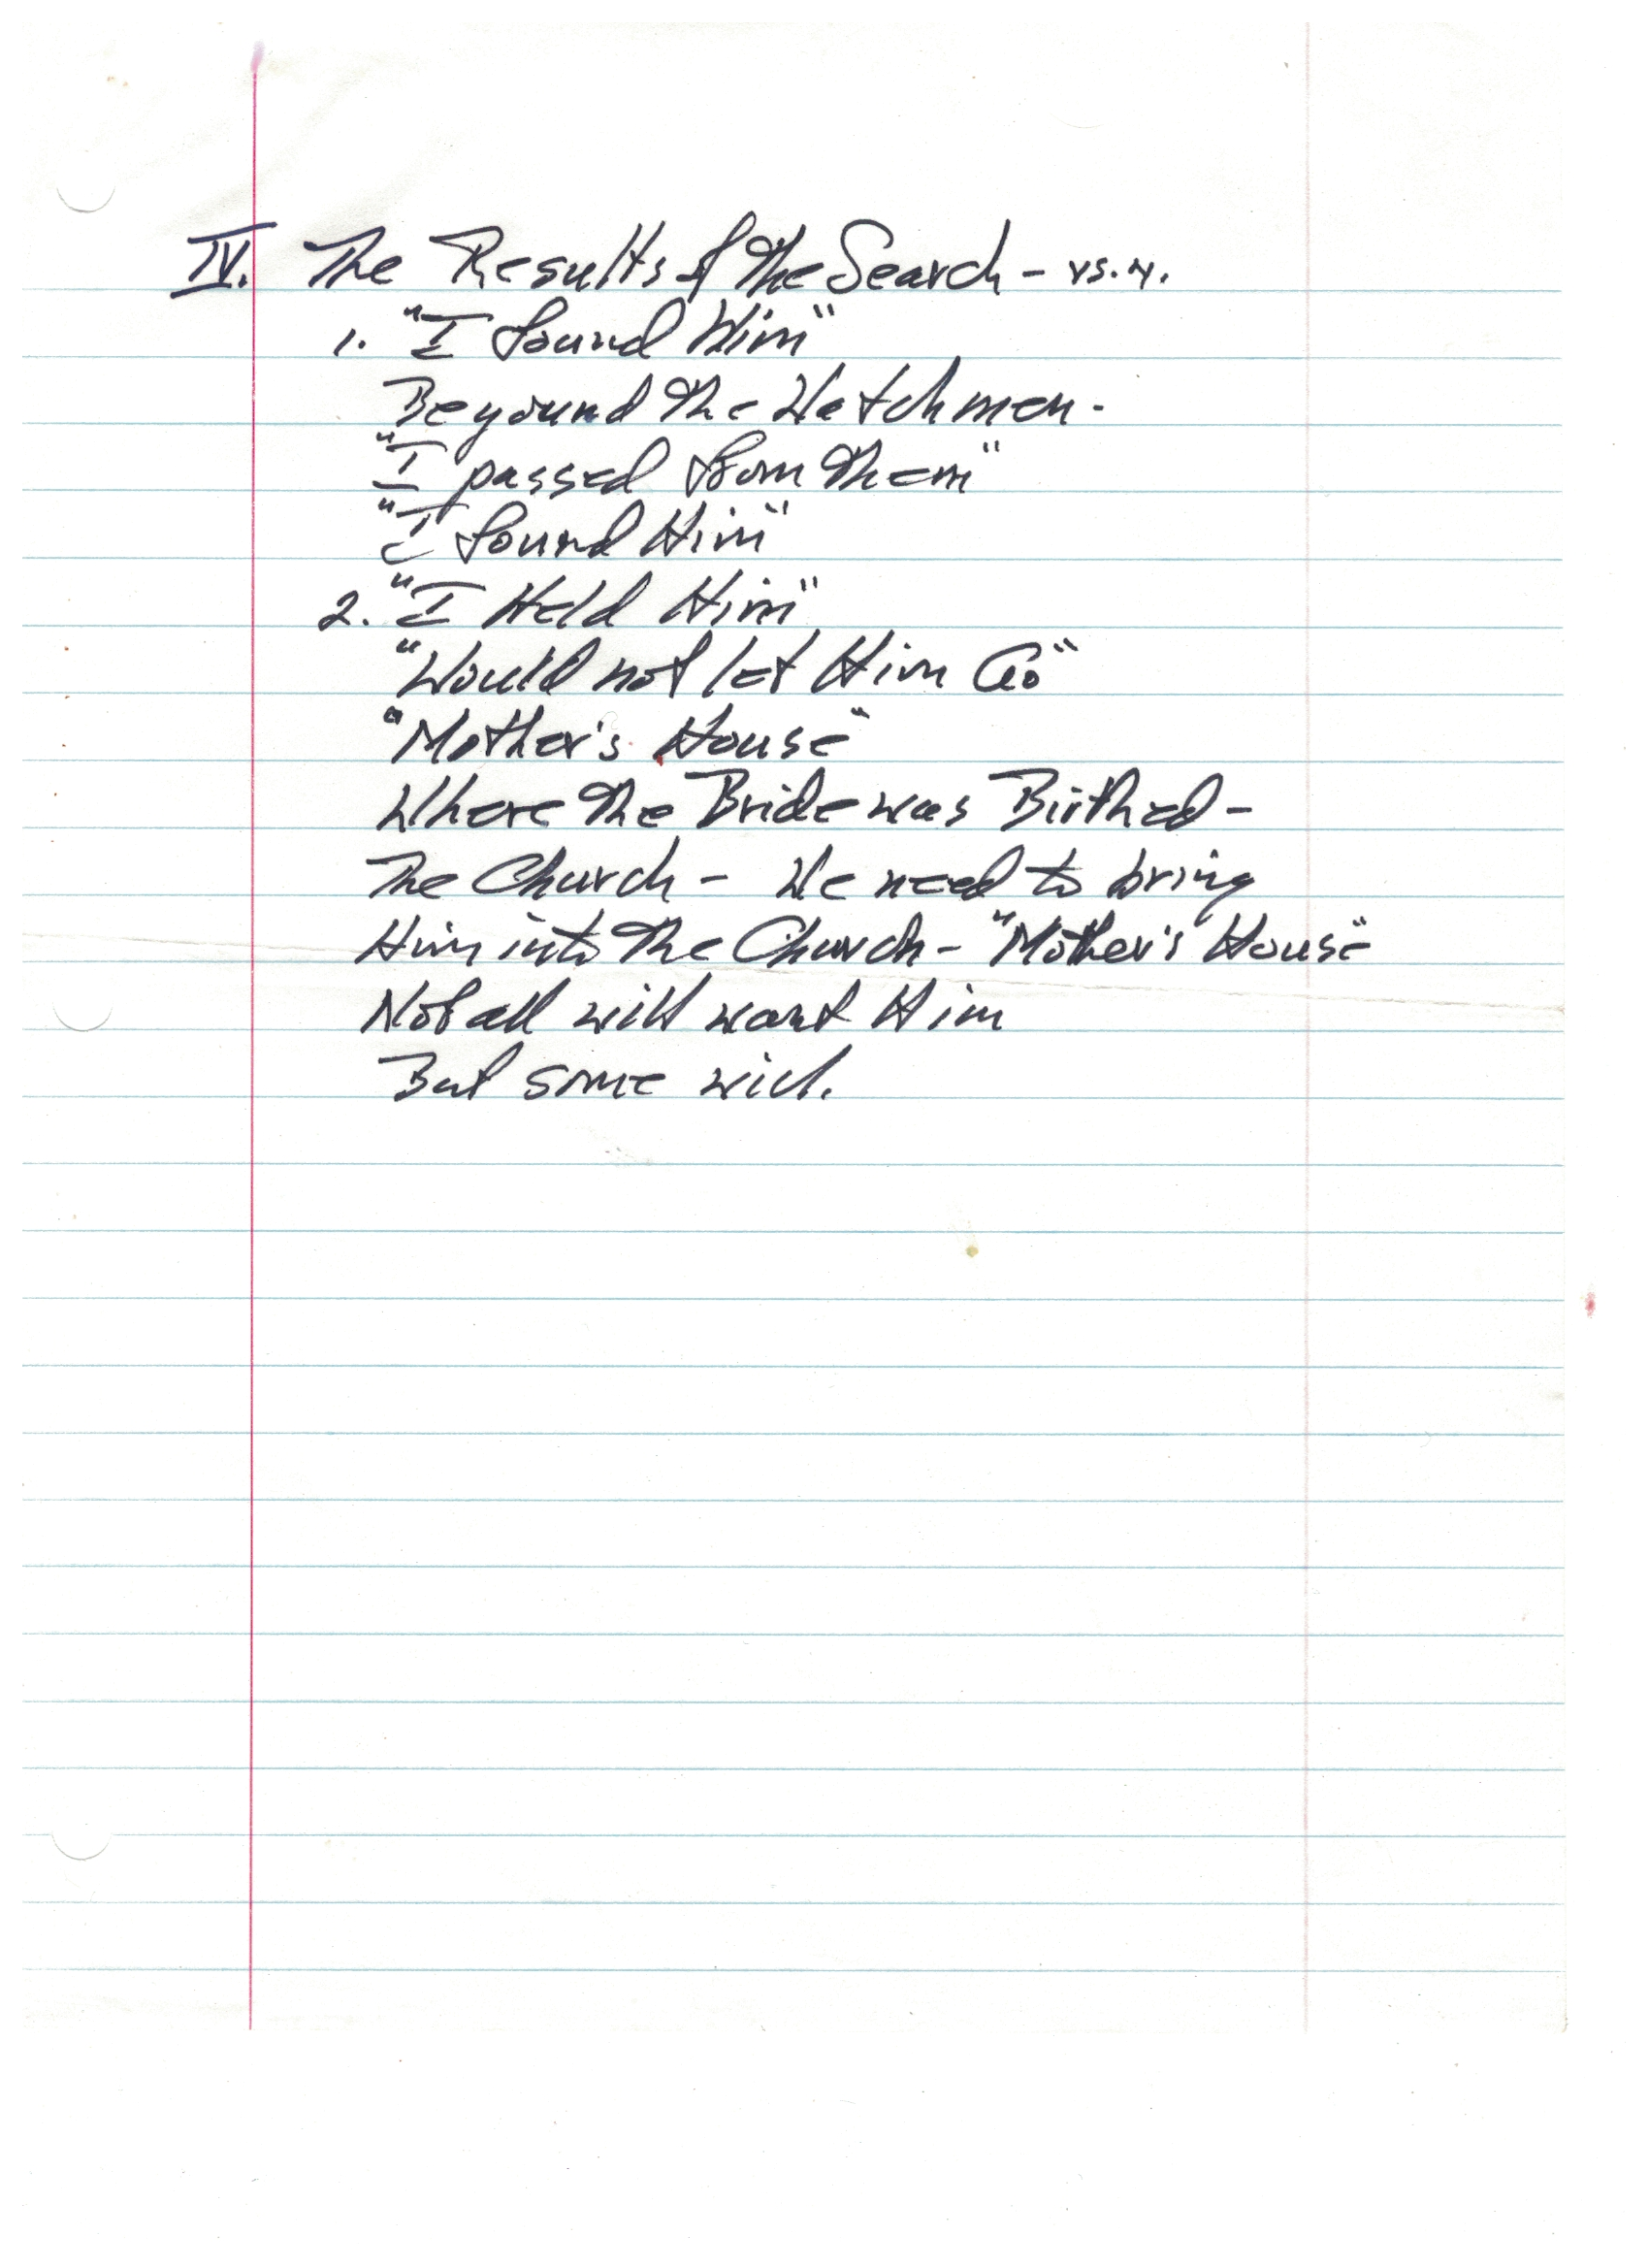 IV. The Results of the Search - vs. 4.
1. "I found Him"
Beyound the Watchmen.
"I passed from them"
"I found Him"
2. "I Held Him"
"Would not let Him Go"
"Mother's House"
Where the Bride was Birthed -
The Church - We need to bring
Him into the Church - "Mother's House"
Not all will want Him
But some will.